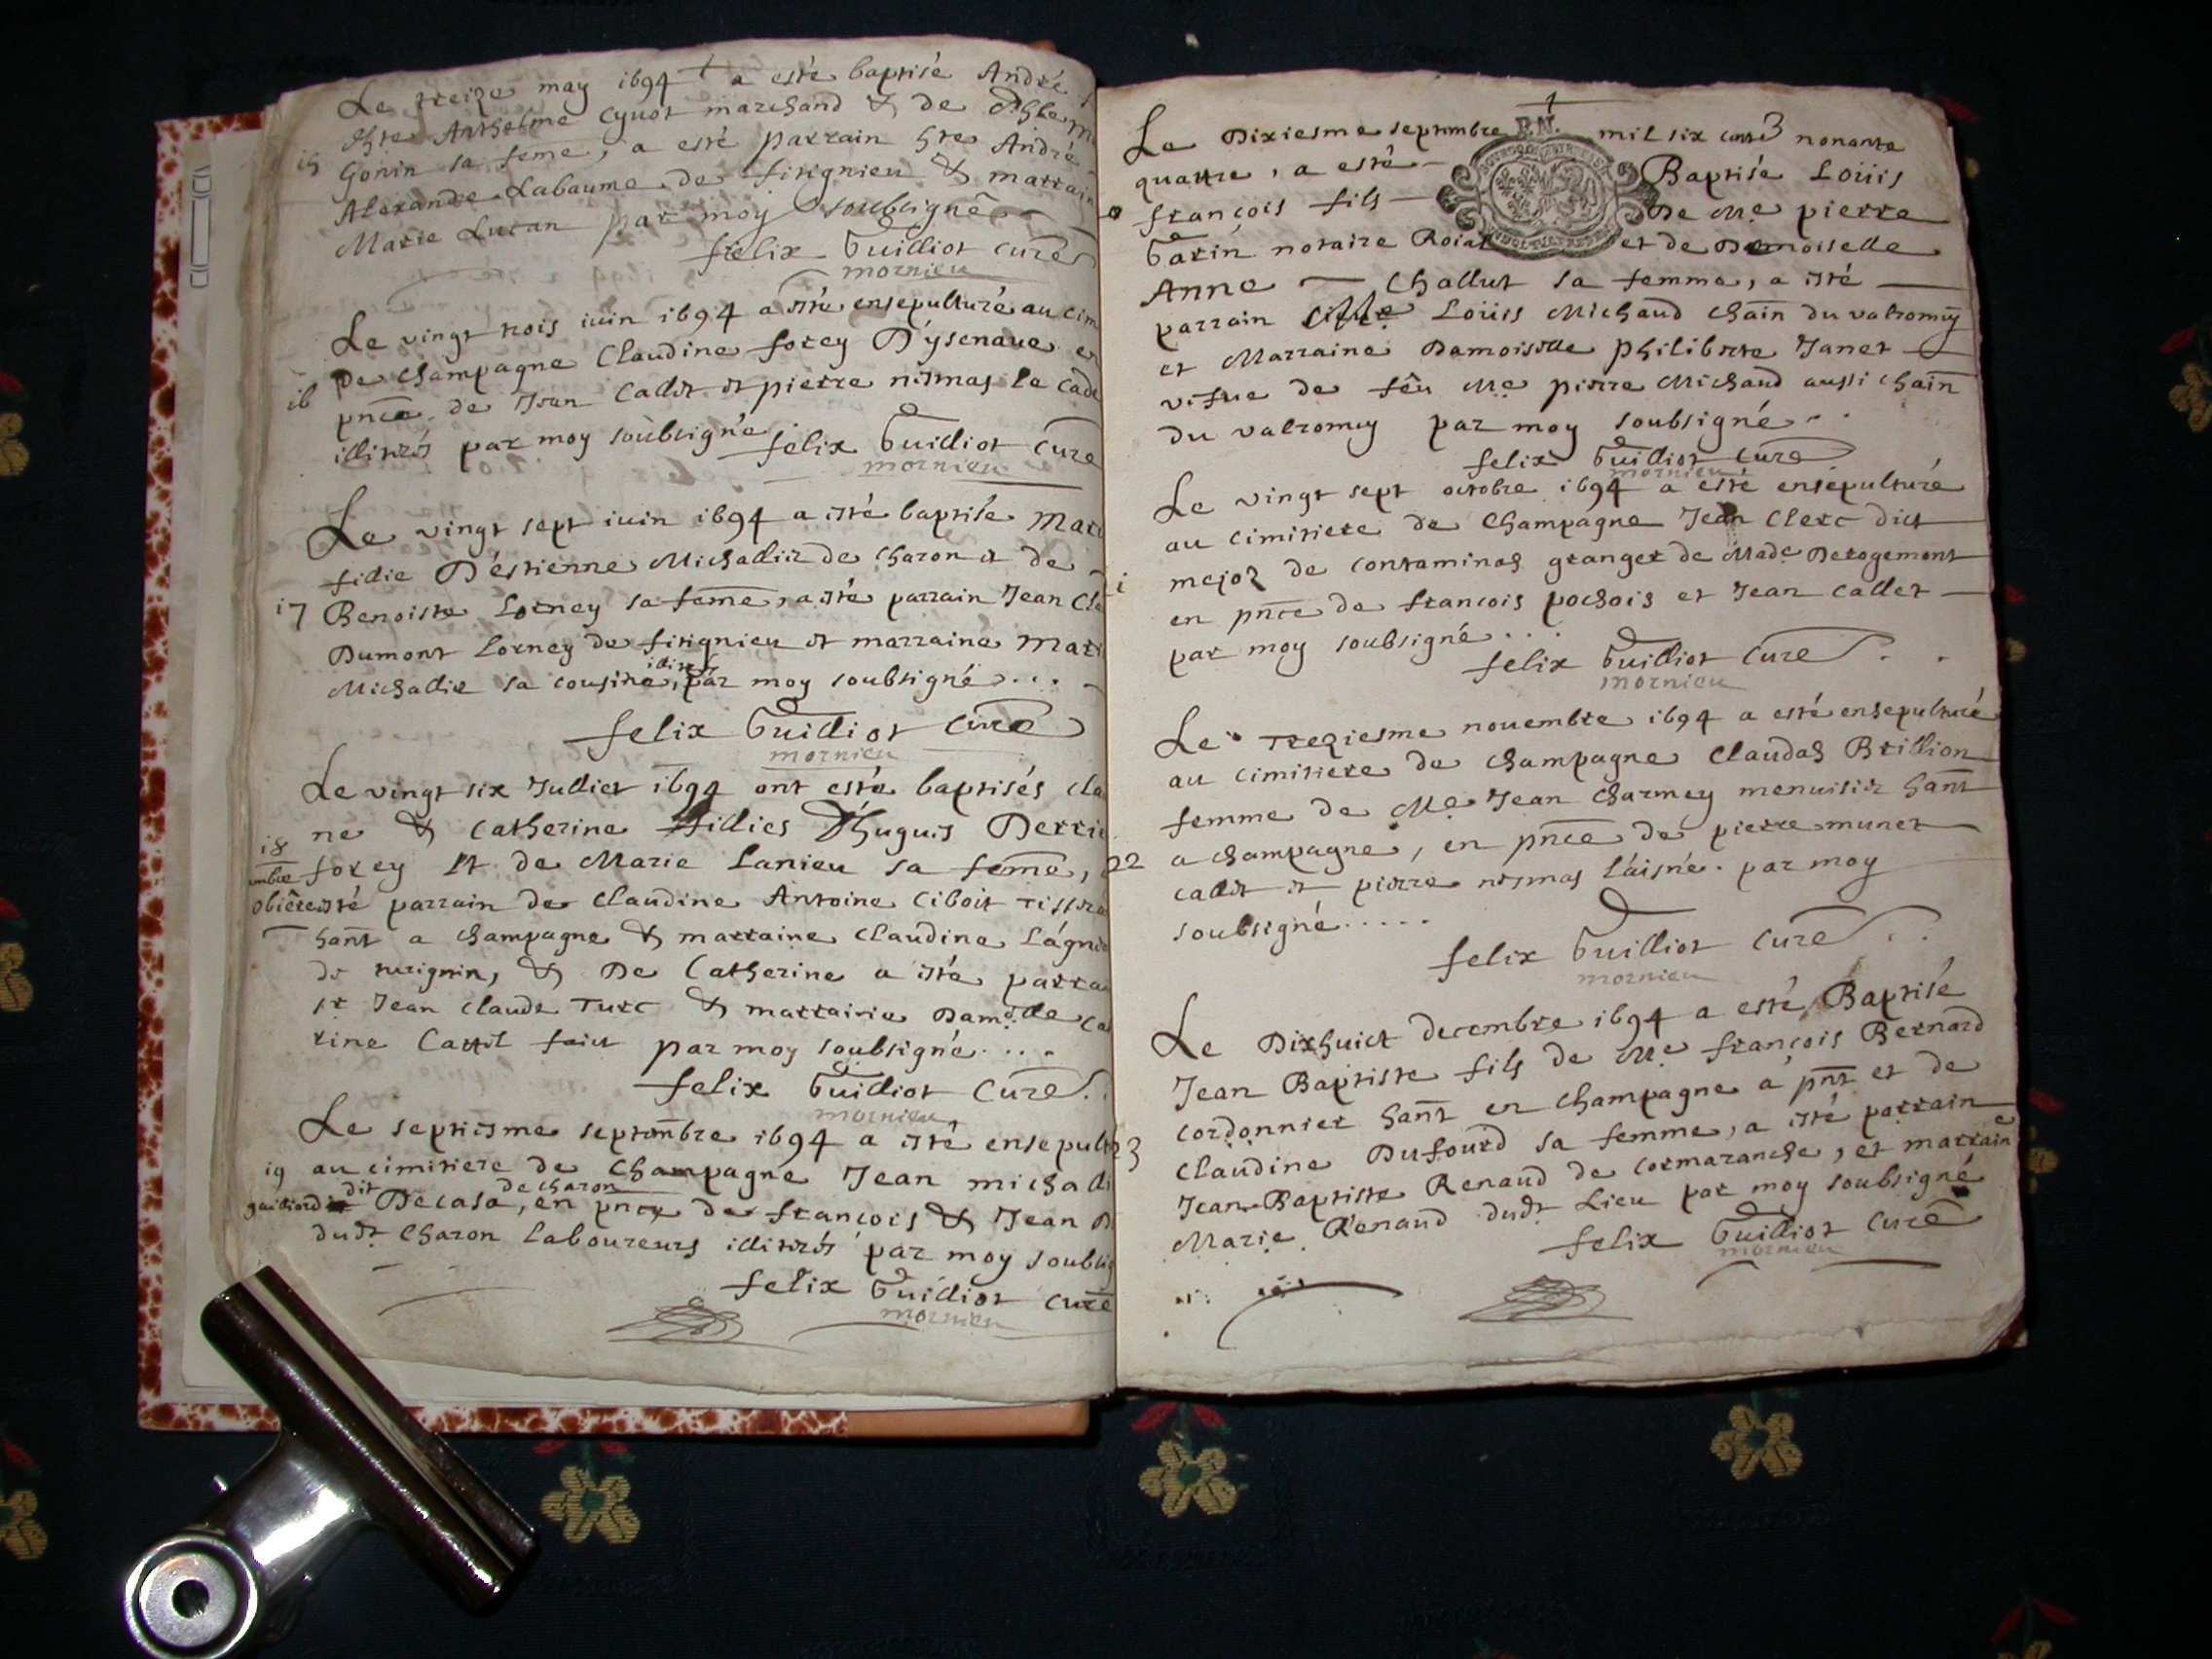 Le treize may 1694 a esté baptisé André
hte Anthelme Cyvot marchand & de
15
Gonin sa feme, a esté parrain hte André
Alexandre Labaume de fitignieu & marrai
Marie Lucan par moy soubsigné
felix Guilliot curé
mornieu
Le vingt trois iuin 1694 a esté ensepulturé au cim
16
de champagne Claudine forey D'ysenaue en
pnce de Jean Callet et pierre nismas le cade
illitrés par moy soubsigné
felix Guilliot curé
mornieu
Le vingt sept iuin 1694 a esté baptisée Mari
fillie D'éstienne Michallier de charon et de
17
Benoiste Lorney sa feme, a esté parrain Jean Cla
Dumont Lorney de fitignieu et marraine Mari
illitrés
Michallie sa cousine, par moy soubsigné
felix Guilliot curé
mornieu
Le vingt six Julliet 1694 ont esté baptisés cla
ne & Catherine fillies D'huguis Perrie
18
forey et de Marie Lanieu sa feme,
esté parrain de Claudine Antoine Ciboit Tissra
hant a champagne & marraine claudine Lágni
de & De Catherine a esté parra
sr Jean claude Turc & marraine Damlle ca
rine Carrel faict par moy soubsigné
felix Guilliot Curé
mornieu
Le septiesme septembre 1694 a esté ensepult
19
au cimitiere de Champagne Jean michalli
dit
de charon
Decasa, en pnce de francois & Jean
dudt Charon laboureurs illitrés par moy soubsig
felix Guilliot curé
mornieu
Le Dixiesme septembre mil six cents nonante
quattre, a esté Baptisé Loüis
françois fils De Me pierre
Garin notaire Roial et de Demoiselle
Anne Challut sa femme, a esté
parrain Loüis Michaud chain du valromey
et Marraine Damoiselle Philiberte Janet
vefue de feu Me pierre Michaud aussi chain
du valromey par moy soubsigné
felix Guilliot curé
mornieu
Le vingt sept octobre 1694 a esté ensepulturé
au cimitiere de Champagne Jean Clerc dict
mejoz de contaminas granger de Made Derogemont
en pnce de francois pochois et Jean callet
par moy soubsigné
felix Guilliot curé
mornieu
Le Treziesme nouembre 1694 a esté ensepulturé
au cimitiere de champagne Claudas Brillion
femme de Me Jean Charmey menuisier hant
22
a champagne, en pnce de pierre munet
callet et pierre nismas l'aisné. par moy
soubsigné
felix Guilliot curé
mornieu
Le Dixhuict decembre 1694 a esté Baptisé
Jean Baptiste fils de Me françois Bernard
cordonnier hant en champagne a pnt et de
23
Claudine Dufourd sa femme, a esté parrain
Jean-Baptiste Renaud de cormaranche, et marraine
Marie Renaud dudt Lieu par moy soubsigné
felix Guilliot curé
mornieu